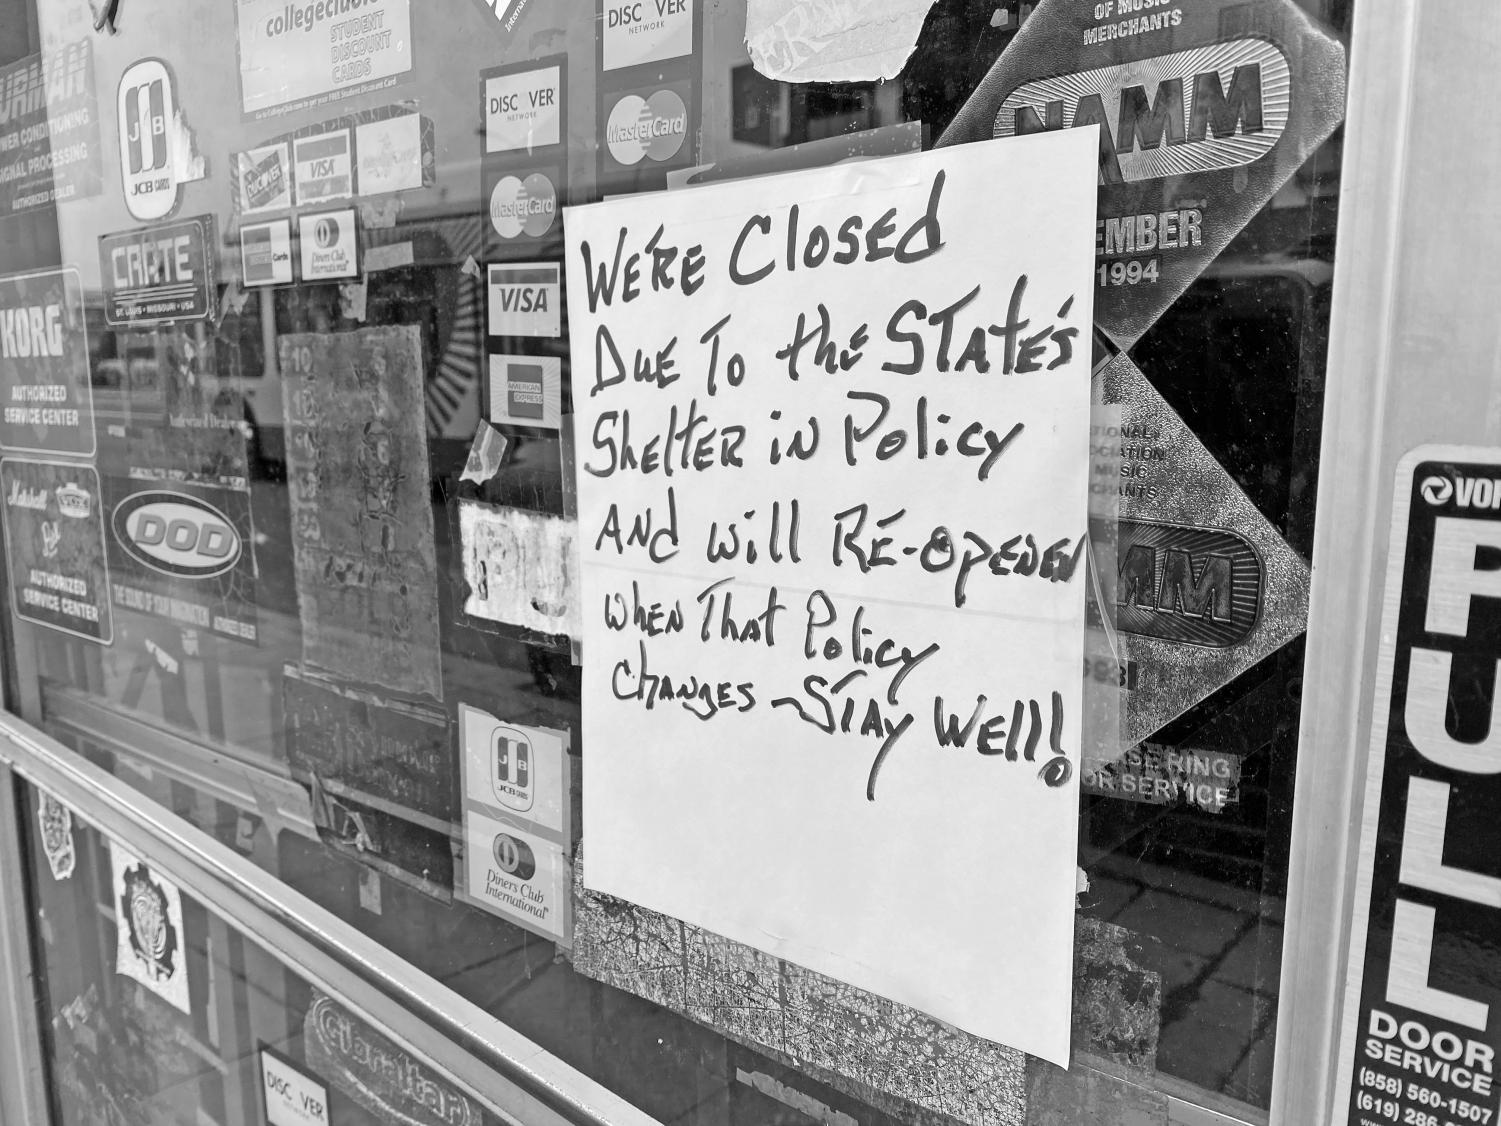 collegeclub
STUDENT
DISCOUNT
CARDS
DISC VER
NETWORK
OF MUSIC
MERCHANTS
NAMM
EMBER
1994
JCB
JCB CARDS
DISCOVER
VISA
DISC VER
NETWORK
MasterCard
MasterCard
Cards
Diners Club
International
CRATE
ST. LOUIS • MISSOURI • USA
VISA
AMERICAN
EXPRESS
POWER CONDITIONING
SIGNAL PROCESSING
AUTHORIZED DEALER
KORG
AUTHORIZED
SERVICE CENTER
Marshall
VOX
AUTHORIZED
SERVICE CENTER
DOD
THE SOUND OF YOUR IMAGINATION
WE'RE Closed
DUE TO the STATE'S
Shelter in Policy
AND will RE-OPENEN
WHEN That Policy
CHANGES ~ STAY WELL!
MM
OR SERVICE
JCB
JCB CARDS
Diners Club
International
DISC VER
Guitar
PULL
DOOR
SERVICE
(858) 560-1507
(619) 286-